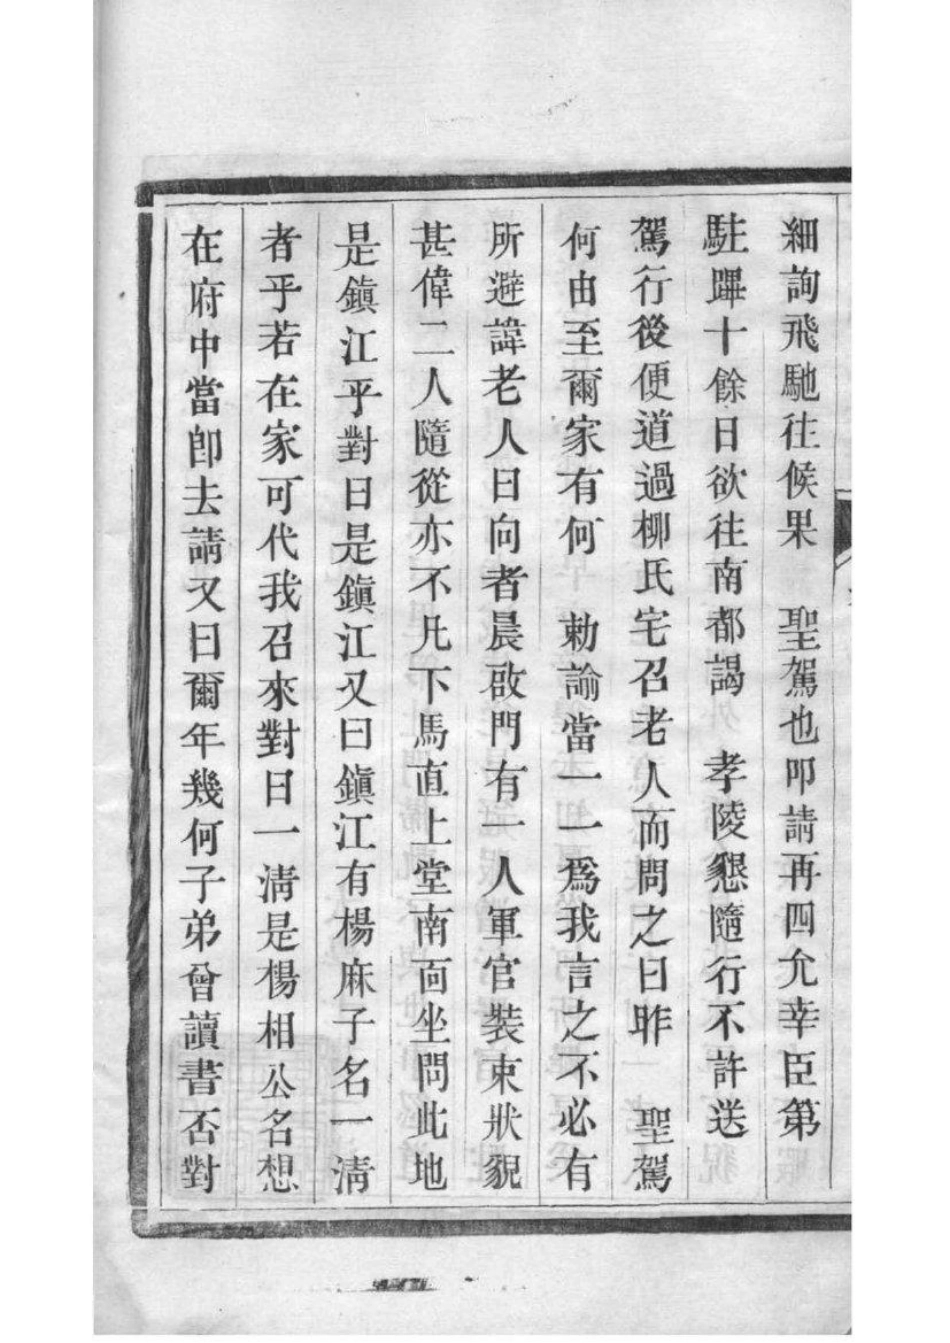 細詢飛馳往候果　聖駕也叩請再四允幸臣第
駐蹕十餘日欲往南都謁　孝陵懇隨行不許送
駕行後便道過柳氏宅召老人而問之曰昨　聖駕
何由至爾家有何　勅諭當一一爲我言之不必有
所避諱老人曰向者晨啟門有一人軍官裝束狀貌
甚偉二人隨從亦不凡下馬直上堂南面坐問此地
是鎮江乎對曰是鎮江又曰鎮江有楊麻子名一淸
者乎若在家可代我召來對曰一淸是楊相公名想
在府中當卽去請又曰爾年幾何子弟曾讀書否對